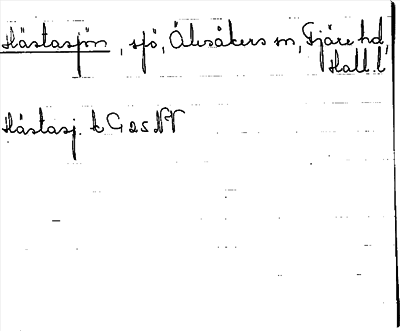 Hästasjön, sjö, Älvsåkers sn, Fjäre hd,
Hall. l.
Hästasj. k G 25 NV